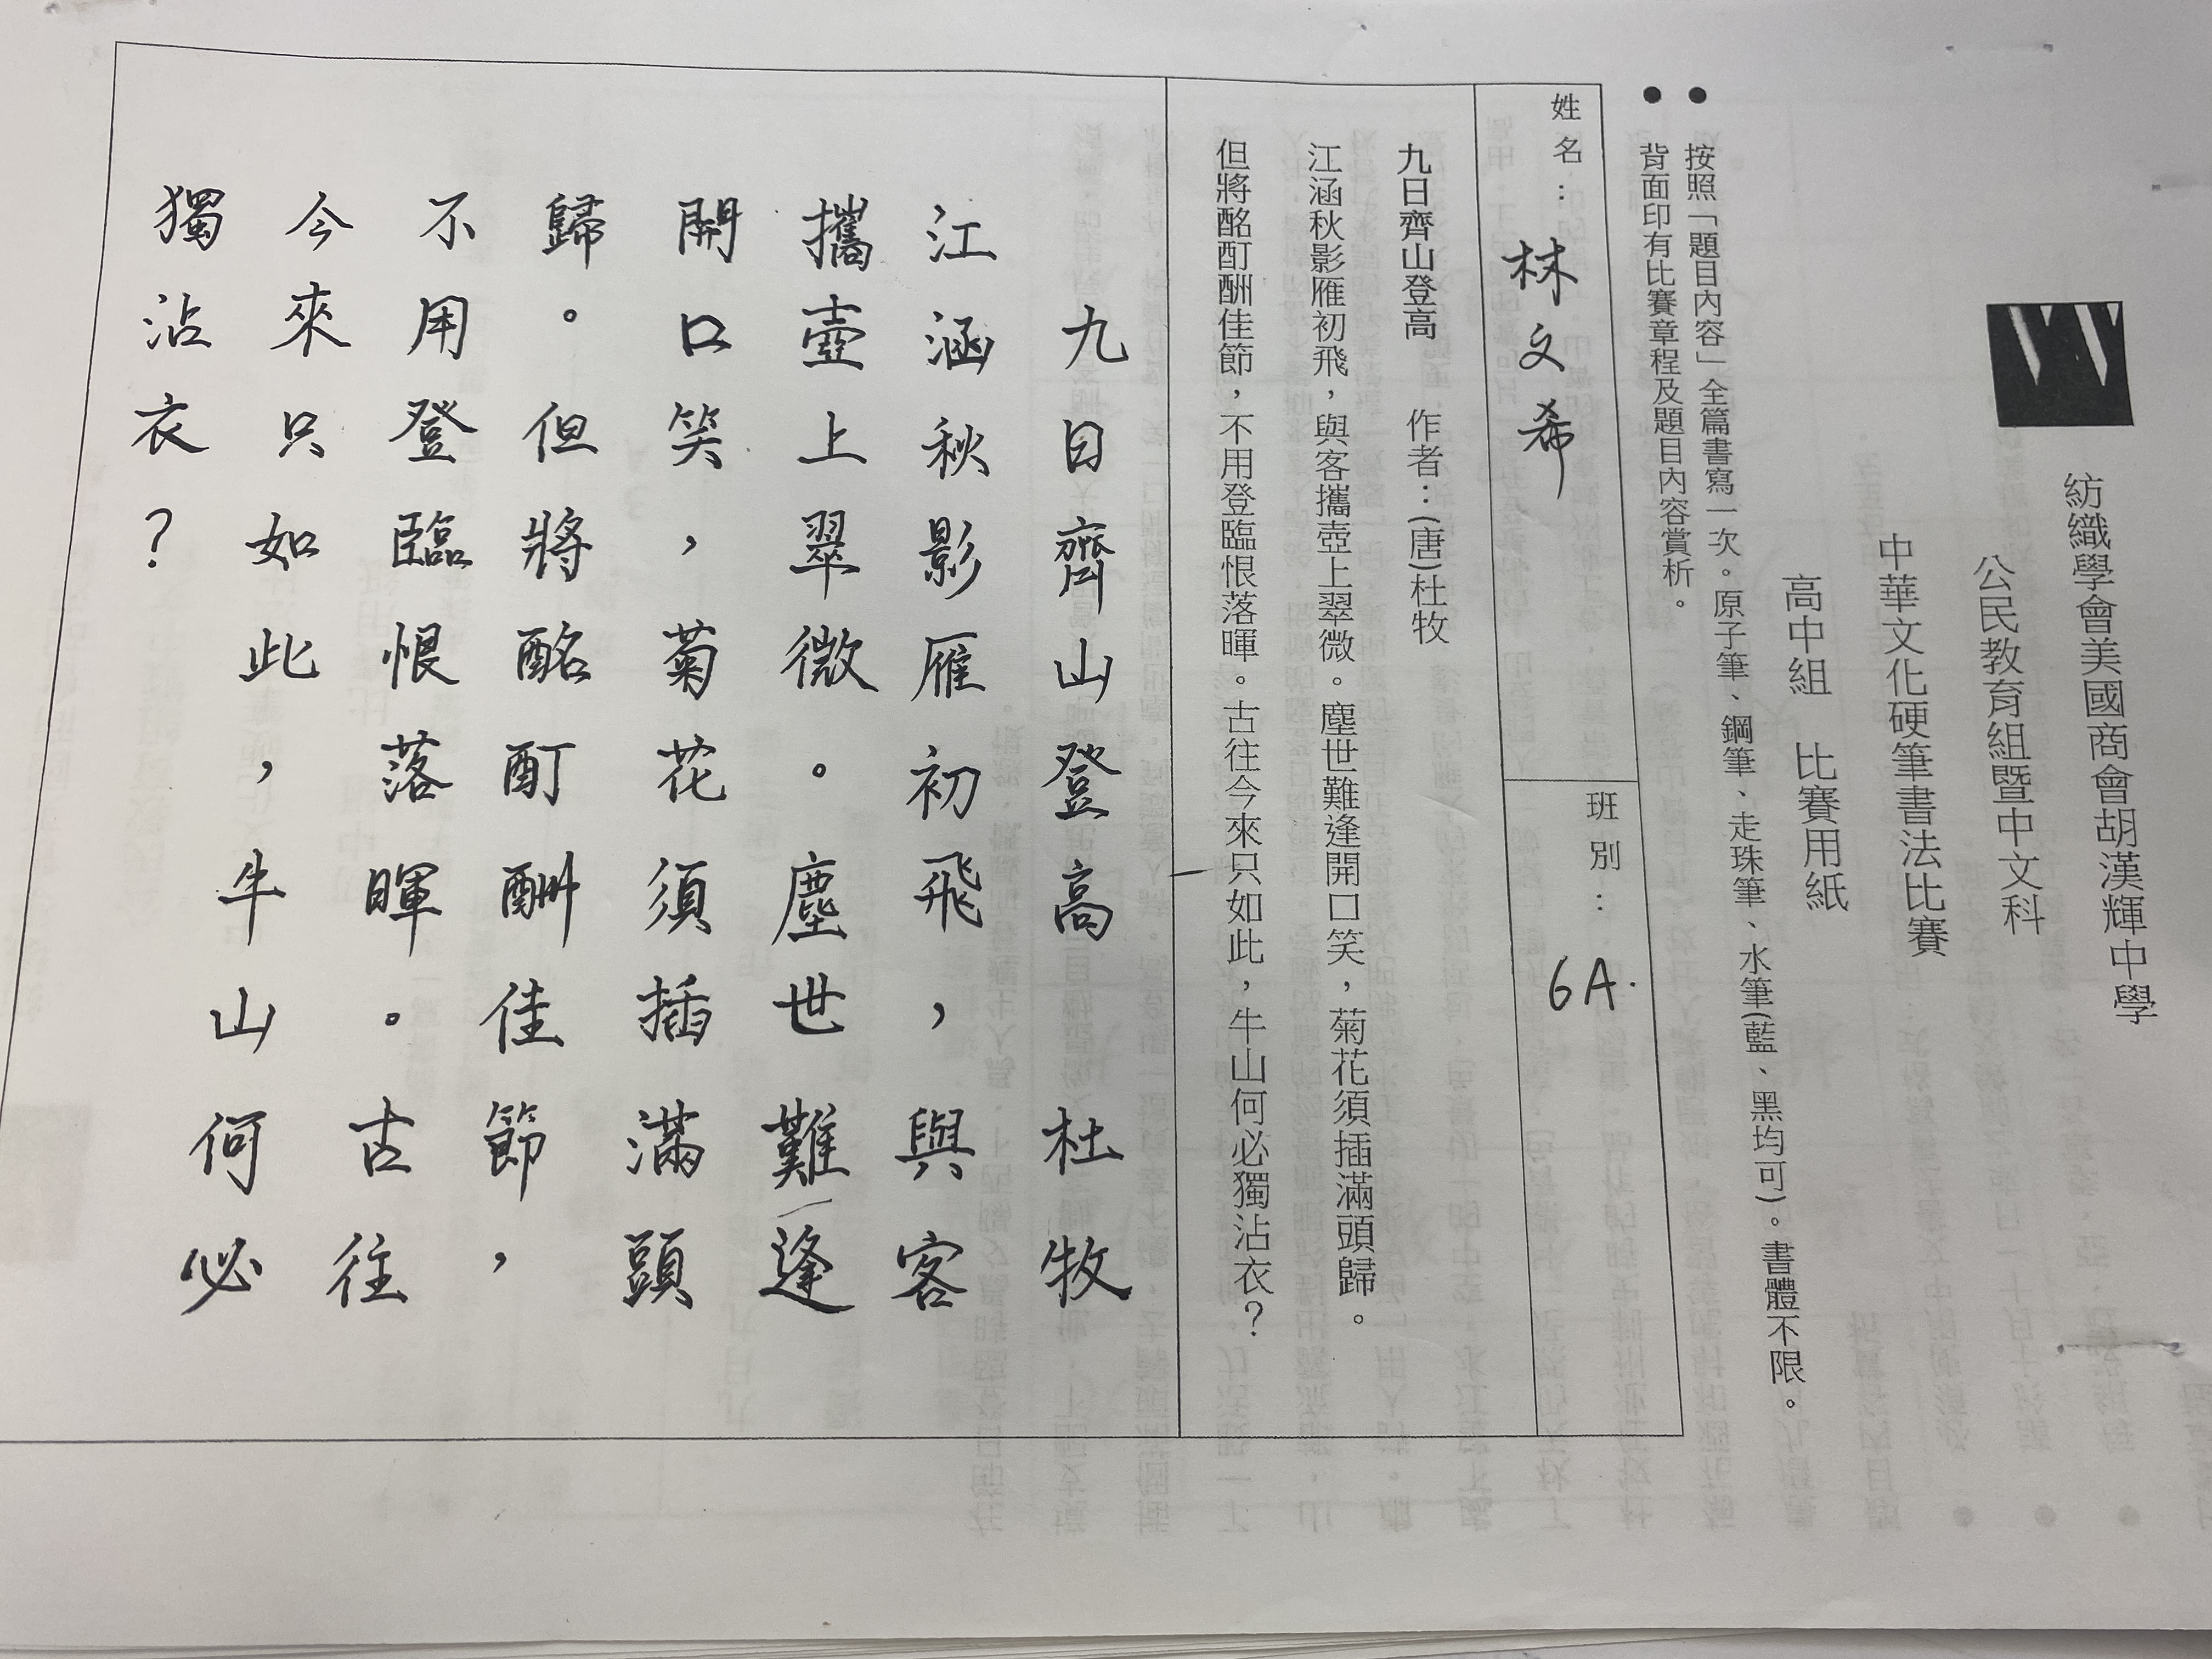 紡織學會美國商會胡漢輝中學
公民教育組暨中文科
中華文化硬筆書法比賽
高中組 比賽用紙
● 按照「題目內容」全篇書寫一次。原子筆、鋼筆、走珠筆、水筆(藍、黑均可)。書體不限。
● 背面印有比賽章程及題目內容賞析。
姓名：林文希
班別：6A.
九日齊山登高 作者：(唐)杜牧
江涵秋影雁初飛，與客攜壺上翠微。塵世難逢開口笑，菊花須插滿頭歸。
但將酩酊酬佳節，不用登臨恨落暉。古往今來只如此，牛山何必獨沾衣？
九日齊山登高杜牧
江涵秋影雁初飛，與客
攜壺上翠微。塵世難逢
開口笑，菊花須插滿頭
歸。但將酩酊酬佳節，
不用登臨恨落暉。古往
今來只如此，牛山何必
獨沾衣？